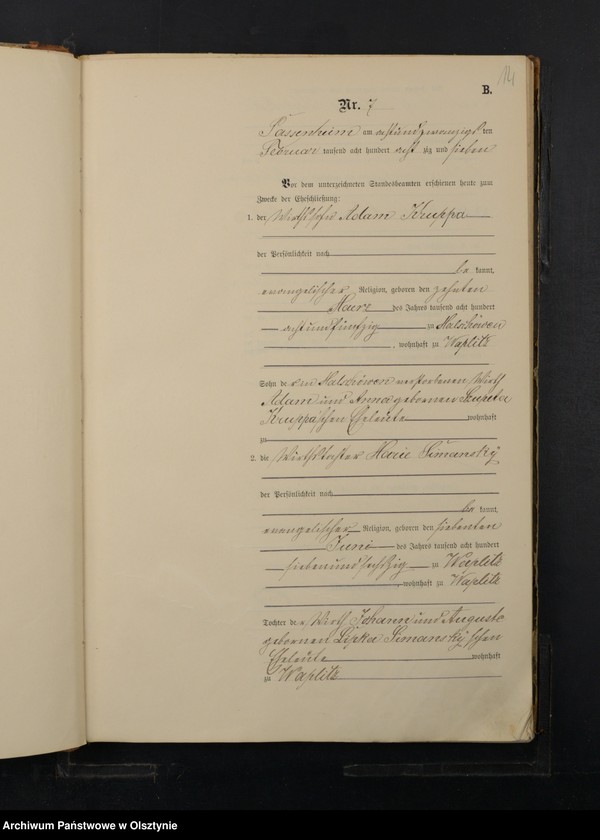 14
B.
Nr. 7
Passenheim am achtundzwanzigsten
Februar tausend acht hundert acht zig und sieben
Vor dem unterzeichneten Standesbeamten erschienen heute zum
Zwecke der Eheschließung:
1. der Wirthssohn Adam Kruppa
der Persönlichkeit nach
be kannt,
evangelischer Religion, geboren den zehnten
März des Jahres tausend acht hundert
achtundfünfzig zu Malschöwen
, wohnhaft zu Waplitz
Sohn de verstorbenen Wirth
Adam und Anna geborenen
Kruppa'schen Eheleute wohnhaft
zu
2. die Wirthstochter Marie Simansky
der Persönlichkeit nach
be kannt,
evangelischer Religion, geboren den siebenten
Juni des Jahres tausend acht hundert
siebenundsechszig zu Waplitz
, wohnhaft zu Waplitz
Tochter der Wirth Johann und Auguste
geborenen Lipka Simansky'schen
Eheleute wohnhaft
zu Waplitz
Archiwum Państwowe w Olsztynie